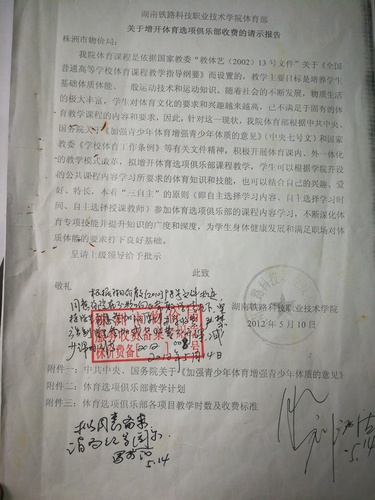 湖南铁路科技职业技术学院体育部
关于增开体育选项俱乐部收费的请示报告
株洲市物价局：
我院体育课程是依据国家教委“教体艺（2002）13号文件”关于《全国
普通高等学校体育课程教学指导纲要》而设置的，教学主要目标是培养学生
基础体质体能、一般运动技术和运动知识。随着社会的不断发展，物质生活
的极大丰富，学生对体育文化的要求和兴趣越来越高，已不满足于固有的体
育教学课程的内容和要求。因此，针对这一现状，我院体育部根据中共中央、
国务院关于《加强青少年体育增强青少年体质的意见》（中央七号文）和国家
教委《学校体育工作条例》等有关文件精神，积极开展体育课内、外一体化
的教学模式改革，拟增开体育选项俱乐部课程教学，学生可以根据学院开设
的公共课程内容学习所要求的体育知识和技能，也可以结合自己的兴趣、爱
好、特长，本着“三自主”的原则（即自主选择学习内容、自主选择学习时
间、自主选择授课教师）参加体育选项俱乐部的课程内容学习，不断深化体
育专项技能并提升知识的广度和深度，为学生身体健康发展和满足职场对体
质体能的要求打下良好基础。
呈请上级领导给予批示
此致
敬礼
湖南铁路科技职业技术学院
2012年5月10日
附件一：中共中央、国务院关于《加强青少年体育增强青少年体质的意见》
附件二：体育选项俱乐部教学计划
附件三：体育选项俱乐部各项目教学时数及收费标准
5.14
5.14